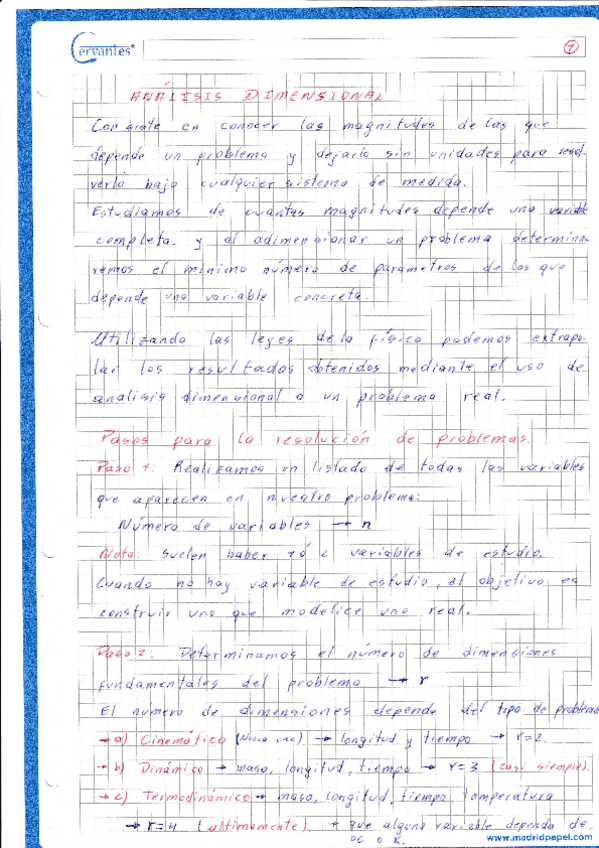 Cervantes
1
ANÁLISIS DIMENSIONAL
Consiste en conocer las magnitudes de las que
depende un problema y dejarlo sin unidades para resol-
verlo bajo cualquier sistema de medida.
Estudiamos de cuantas magnitudes depende una variable
completa. y al adimensionar un problema determina-
remos el mínimo número de parametros de los que
depende una variable concreta.
Utilizando las leyes de la física podemos extrapo-
lar los resultados obtenidos mediante el uso de
analisis dimensional a un problema real.
Pasos para la resolución de problemas.
Paso 1: Realizamos un listado de todas las variables
que aparecen en nuestro problema:
Número de variables → n
Nota: suelen haber 1 ó 2 variables de estudio.
Cuando no hay variable de estudio, el objetivo es
construir una que modelice uno real.
Paso 2: Determinamos el número de dimensiones
fundamentales del problema → r
El número de dimensiones depende del tipo de problema
→ a) Cinemático → longitud y tiempo → r=2.
→ b) Dinámico → masa, longitud, tiempo → r=3 (casi siempre).
→ c) Termodinámico → masa, longitud, tiempo, temperatura
→ r=4 (ultimamente). → que alguna variable dependa de
ºC o K.
www.madridpapel.com